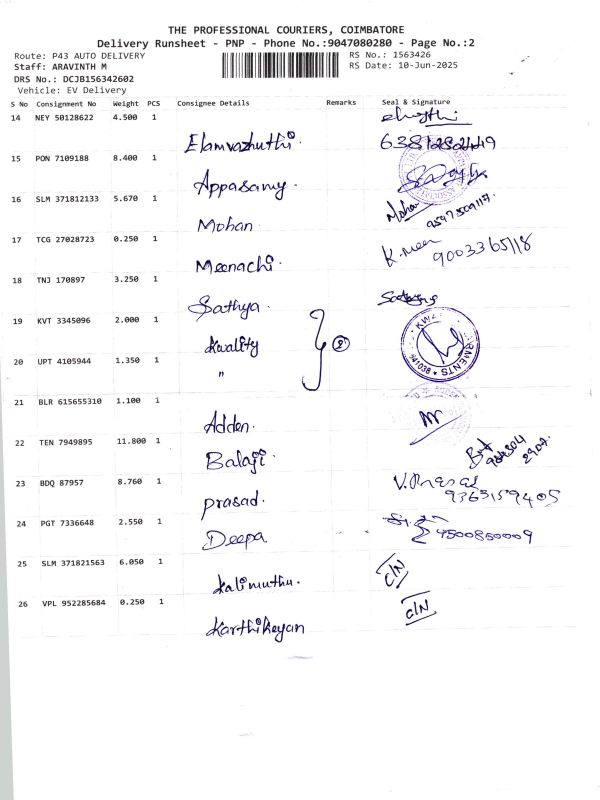 THE PROFESSIONAL COURIERS, COIMBATORE
Delivery Runsheet - PNP - Phone No.:9047080280 - Page No.:2
Route: P43 AUTO DELIVERY RS No.: 1563426
Staff: ARAVINTH M RS Date: 10-Jun-2025
DRS No.: DCJB156342602
Vehicle: EV Delivery
S No Consignment No Weight PCS Consignee Details Remarks Seal & Signature
14 NEY 50128622 4.500 1
Elamvazhuthi
15 PON 7109188 8.400 1
Appasamy.
16 SLM 371812133 5.670 1 Mohan
Mohan 9597509117.
17 TCG 27028723 0.250 1 K.Meen
Meenachi 9003365118
18 TNJ 170897 3.250 1
Sathya.
19 KVT 3345096 2.000 1
Kwality 2
20 UPT 4105944 1.350 1 641038 ★
"
21 BLR 615655310 1.100 1
Adden.
22 TEN 7949895 11.800 1
Balaji
23 BDQ 87957 8.760 1
Prasad. 9363159405
24 PGT 7336648 2.550 1
Deepa 9500850009
25 SLM 371821563 6.050 1 C/N
Kalimuthu.
26 VPL 952285684 0.250 1 C/N
Karthikeyan